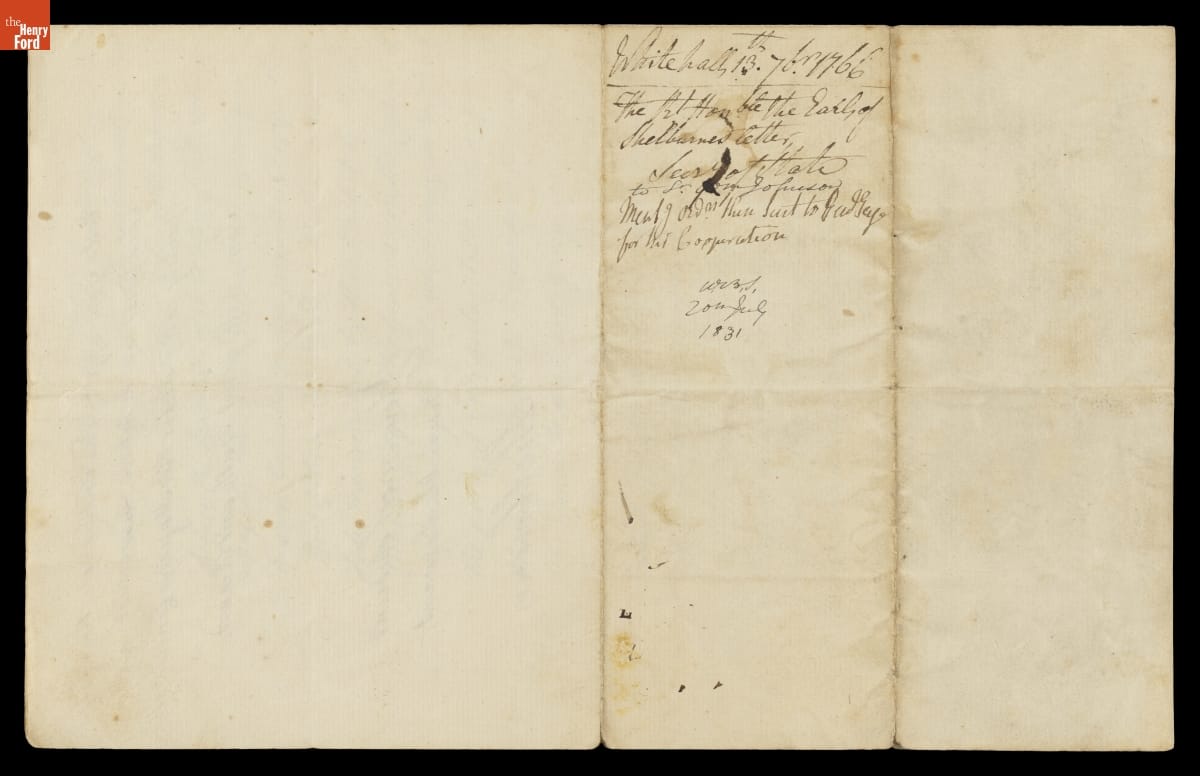 the
Henry
Ford
Whitehall 13th. 7br. 1766
The Rt Honble the Earl of
Shelburnes letter,
Secry of State
to Sr. Wm Johnson
Ment'g Ordrs then Sent to Genl Gage
for his Cooperation
20th July
1831